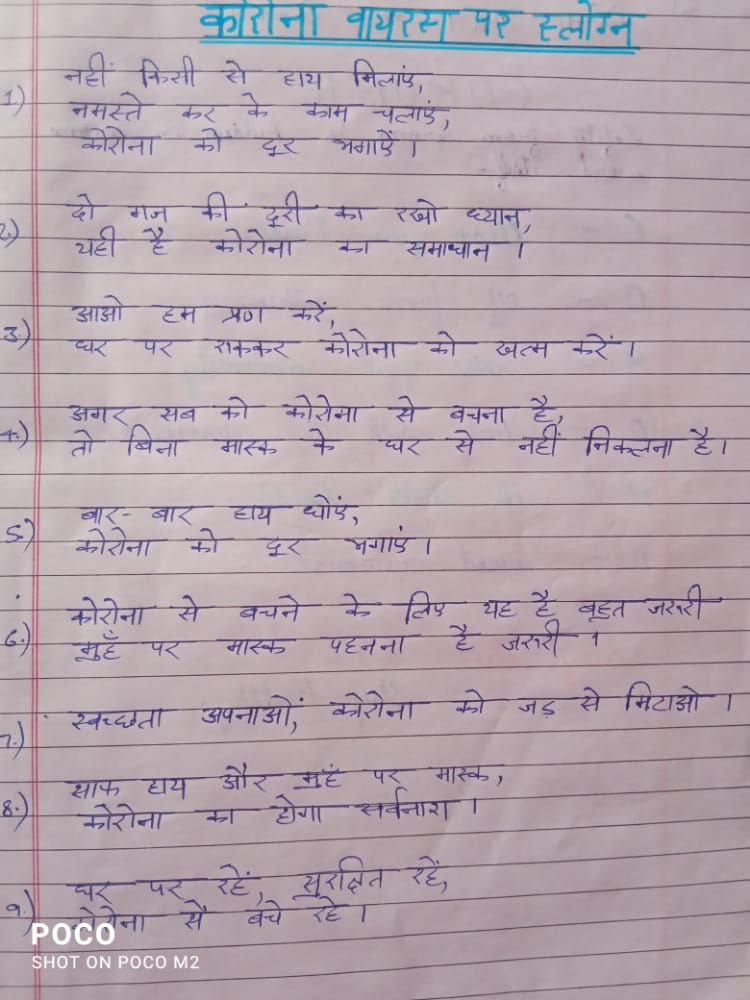 कोरोना वायरस पर स्लोगन
1) नहीं किसी से हाथ मिलाएं,
नमस्ते कर के काम चलाएं,
कोरोना को दूर भगाएँ।
2.) दो गज की दूरी का रखो ध्यान,
यही है कोरोना का समाधान।
3.) आओ हम प्रण करें,
घर पर रुककर कोरोना को खत्म करें।
4.) अगर सब को कोरोना से बचना है,
तो बिना मास्क के घर से नहीं निकलना है।
5.) बार-बार हाथ धोएं,
कोरोना को दूर भगाएं।
6.) कोरोना से बचने के लिए यह है बहुत जरुरी
मुहँ पर मास्क पहनना है जरुरी।
7.) स्वच्छता अपनाओं, कोरोना को जड़ से मिटाओ।
8.) साफ हाथ और मुहँ पर मास्क,
कोरोना का होगा सर्वनाश।
9.) घर पर रहें, सुरक्षित रहें,
कोरोना से बचे रहे।
POCO
SHOT ON POCO M2